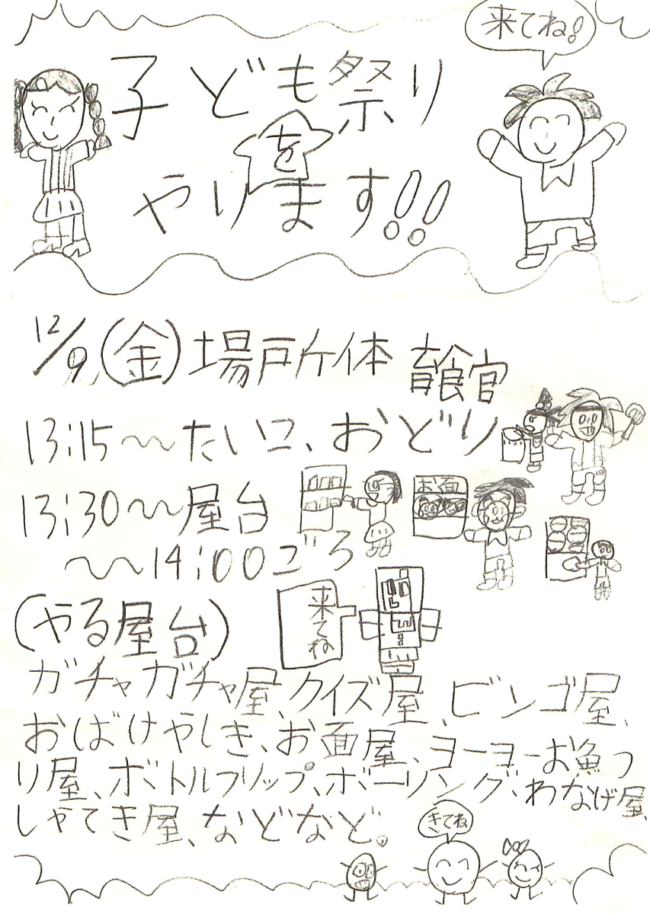 来てね!
子ども祭り
を
やります!!
12/9(金)場所体育館
13:15〜たいこ、おどり
13:30〜屋台
お面
〜14:00ごろ
(やる屋台)
来てね
ガチャガチャ屋、クイズ屋、ビンゴ屋、
おばけやしき、お面屋、ヨーヨーお魚つ
り屋、ボトルフリップ、ボーリング、わなげ屋、
しゃてき屋、などなど。
きてね